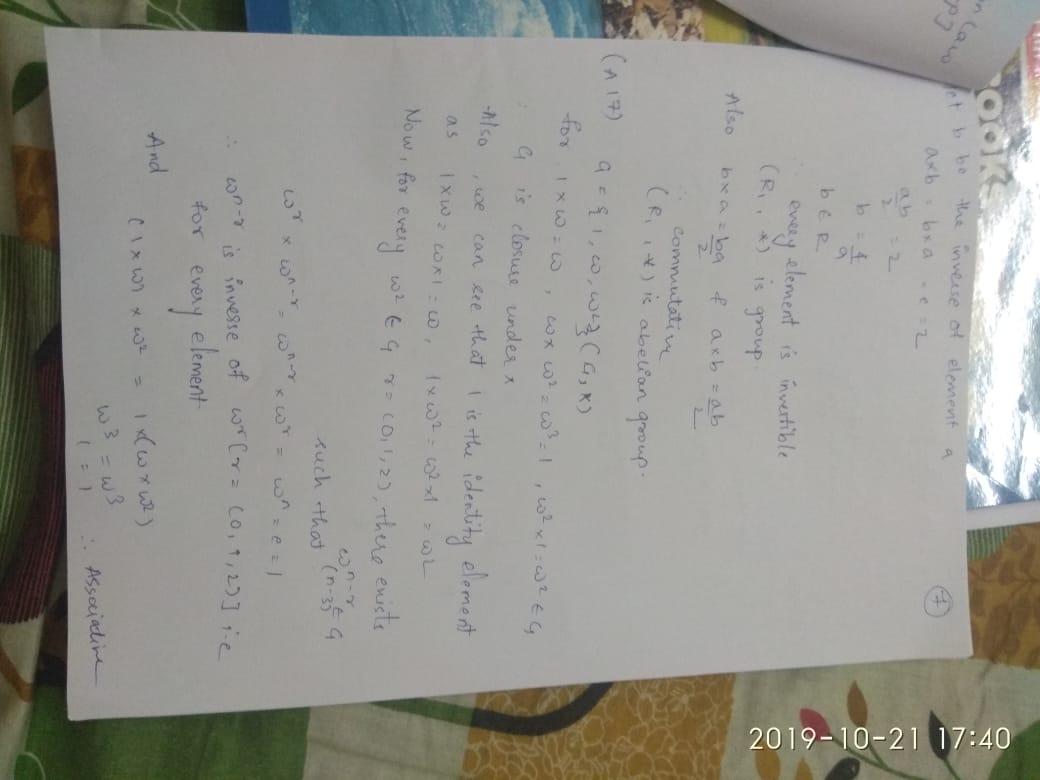 OOKS
n law
p]
let b be the inverse of element a
7
a×b = b×a = e = 2
ab/2 = 2
b = 4/a
b ∈ R
∴ every element is invertible
(R, , *) is group.
Also b×a = ba/2 & a×b = ab/2
∴ commutative
(R, , *) is abelian group.
(A 17) G = {1, ω, ω²} (G, ×)
for 1×ω = ω , ω×ω² = ω³ = 1 , ω²×1 = ω² ∈ G
∴ G is closure under ×
Also , we can see that 1 is the identity element
as 1×ω = ω×1 = ω, 1×ω² = ω²×1 = ω²
Now, for every ω² ∈ G r = (0,1,2), there exists
ω^n-r ∈ G
(n-3)
such that
ω^r × ω^n-r = ω^n-r × ω^r = ω^n = e = 1
∴ ω^n-r is inverse of ω^r [r = (0, 1, 2)] i.e
for every element
And (1×ω) × ω² = 1×(ω×ω²)
ω³ = ω³
1 = 1 ∴ Associative
2019-10-21 17:40